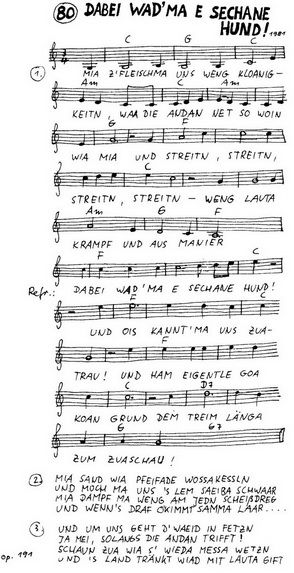 80 DABEI WAD'MA E SECHANE
HUND! 1981
C G C
1. MIA Z'FLEISCHMA UNS WENG KLOANIG-
Am C Am
KEITN, WAA DIE ANDAN NET SO WOIN
G F
WIA MIA UND STREITN, STREITN,
C
STREITN, STREITN - WENG LAUTA
Am G F
KRAMPF UND AUS MANIER
F C
Refr.: DABEI WAD'MA E SECHANE HUND!
F C
UND OIS KANNT'MA UNS ZUA-
F
TRAU! UND HAM EIGENTLE GOA
C D7
KOAN GRUND DEM TREIM LÄNGA
G G7
ZUM ZUASCHAU!
2. MIA SAND WIA PFEIFADE WOSSAKESSLN
UND MOCH MA UNS 'S LEM SAEIBA SCHWAAR
MIA DAMPF MA WENG AM JEDN SCHEIẞDREG
UND WENN'S DRAF OKIMMT SAMMA LAAR....
3. UND UM UNS GEHT D'WAEID IN FETZN
JA MEI, SOLANGS DIE ANDAN TRIFFT!
SCHAUN ZUA WIA S' WIEDA MESSA WETZN
UND 'S LAND TRÄNKT WIAD MIT LAUTA GIFT
op. 191